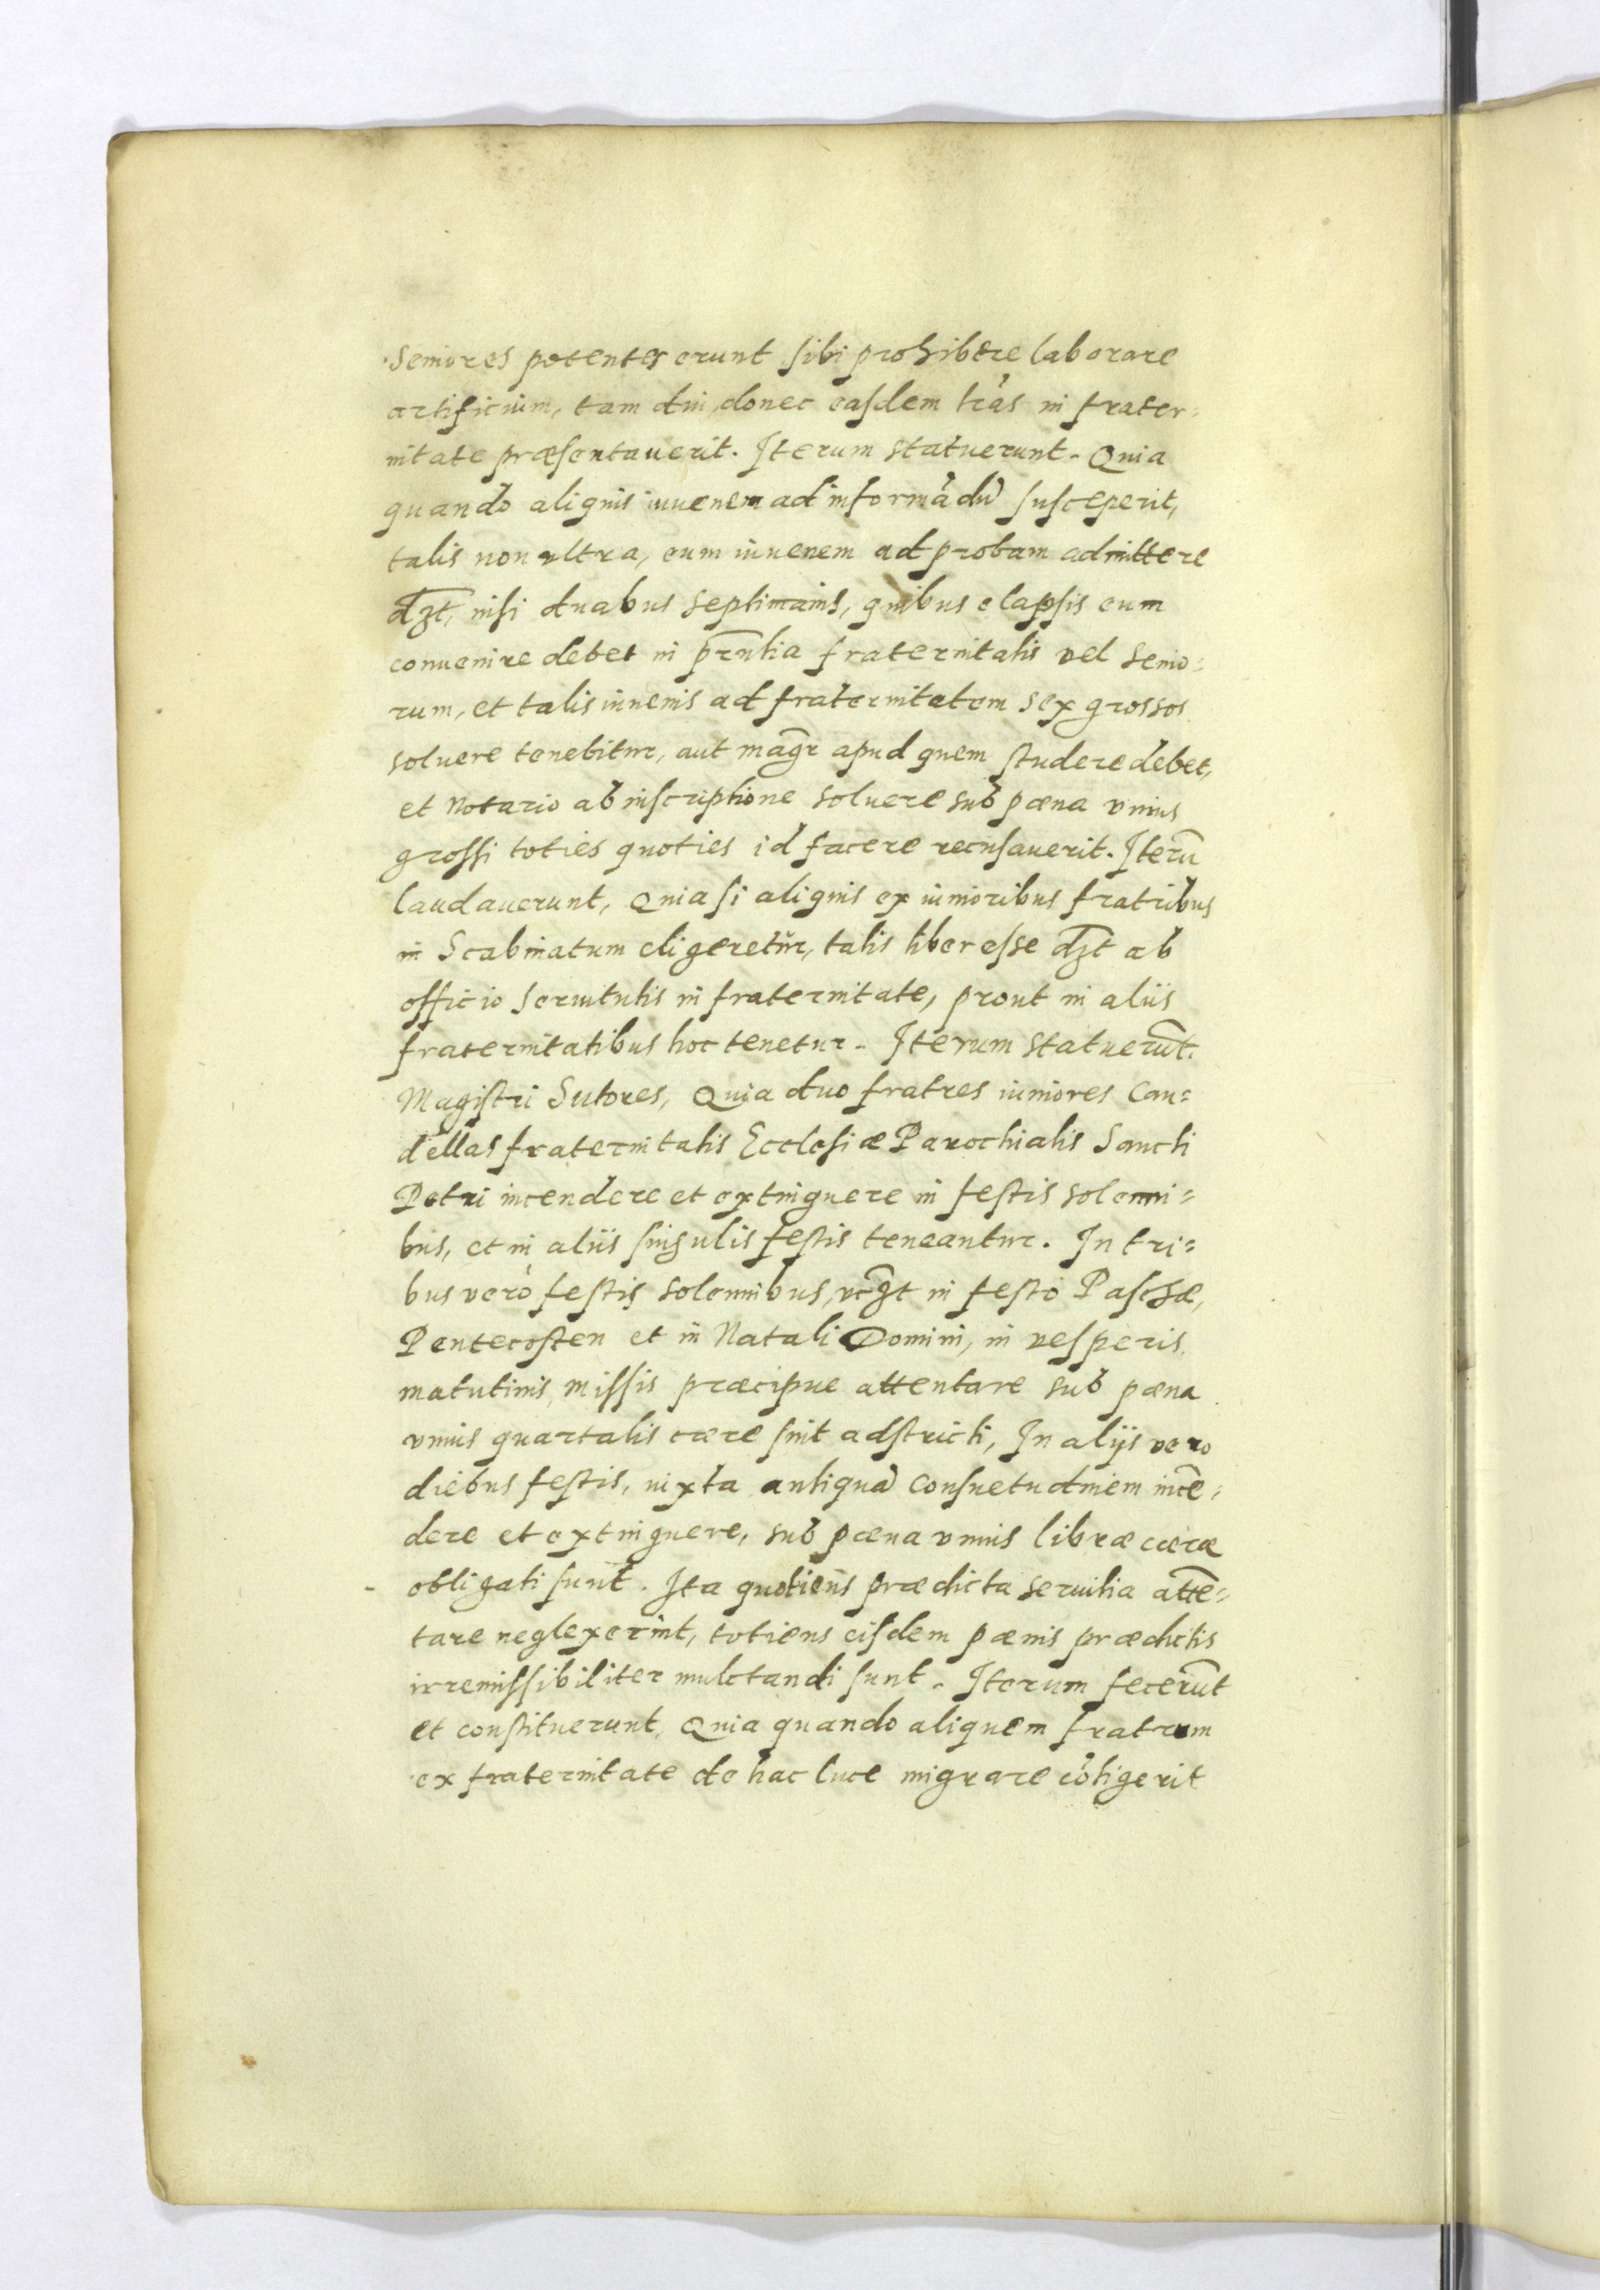 Seniores potentes erunt sibi prohibere laborare
artificium, tam diu, donec easdem lr̃as in frater-
nitate præsentauerit. Iterum statuerunt. Quia
quando aliquis iuuenem ad informãdũ susceperit,
talis non ultra, eum iuuenem ad probam admittere
dꝫt, nisi duabus septimanis, quibus elapsis eum
conuenire debet in prñtia fraternitatis vel senio-
rum, et talis iuuenis ad fraternitatem sex grossos
soluere tenebitur, aut magr̃ apud quem studere debet,
et Notario ab inscriptione soluere sub pæna vnius
grossi toties quoties id facere recusauerit. Iterũ
laudauerunt, Quia si aliquis ex iunioribus fratribus
in Scabinatum eligeretur, talis liber esse dꝫt ab
officio seruitutis in fraternitate, prout in aliis
fraternitatibus hoc tenetur. Iterum statuerũt.
Magistri Sutores, Quia duo fratres iuniores Can=
dellas fraternitatis Ecclesiæ Parochialis Sancti
Petri incendere et extinguere in festis solenni=
bus, et in aliis singulis festis teneantur. In tri=
bus verò festis solennibus, vcꝫt in festo Paschæ,
Pentecosten et in Natali Domini, in vesperis
matutinis, missis præcipue attentare sub pæna
vnius quartalis cære sint adstricti, In alijs vero
diebus festis, iuxta antiquã consuetudinem incẽ=
dere et extinguere, sub pæna vnius libræ cæræ
obligati sunt. Ita quotiens prædicta seruitia attẽ=
tare neglexerint, totiens eisdem pænis prædictis
irremissibiliter mulctandi sunt. Iterum fecerũt
et constituerunt, Quia quando aliquem fratrum
ex fraternitate de hac luce migrare cõtigerit